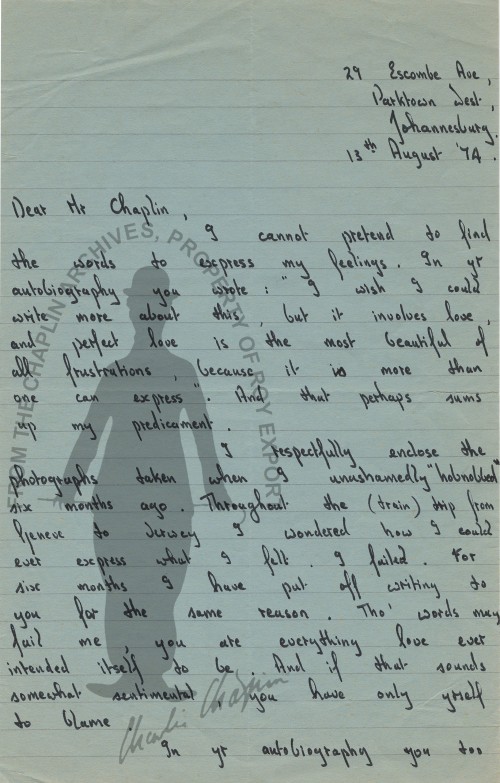 29 Escombe Ave,
Parktown West,
Johannesburg.
13th August '74.
Dear Mr Chaplin,
I cannot pretend to find
the words to express my feelings. In yr
autobiography you wrote: "I wish I could
write more about this, but it involves love,
and perfect love is the most beautiful of
all frustrations, because it is more than
one can express". And that perhaps sums
up my predicament.
I respectfully enclose the
photographs taken when I unashamedly "hobnobbed"
six months ago. Throughout the (train) trip from
Geneve to Vevey I wondered how I could
ever express what I felt. I failed. For
six months I have put off writing to
you for the same reason. Tho' words may
fail me, you are everything love ever
intended itself to be. And if that sounds
somewhat sentimental, you have only yrself
to blame
In yr autobiography you too
FROM THE CHAPLIN ARCHIVES, PROPERTY OF ROY EXPORT
Charlie Chaplin